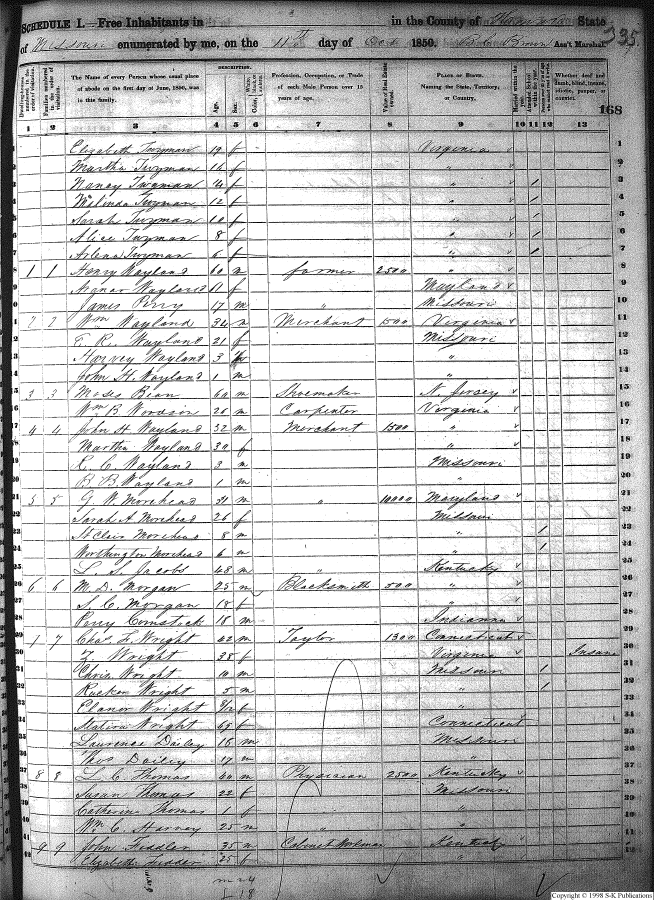 SCHEDULE I.—Free Inhabitants in in the County of State
of Missouri enumerated by me, on the 11th day of Oct 1850. Ass't Marshal. 335
168
Dwelling-houses numbered in the order of visitation.
Families numbered in the order of visitation.
The Name of every Person whose usual place of abode on the first day of June, 1850, was in this family.
DESCRIPTION.
Age. Sex. Color,
Profession, Occupation, or Trade of each Male Person over 15 years of age.
Value of Real Estate owned.
PLACE OF BIRTH. Naming the State, Territory, or Country.
Married within the year.
Attended School within the year.
Whether deaf and dumb, blind, insane, idiotic, pauper, or convict.
1 2 3 4 5 6 7 8 9 10 11 12 13
1 Elizabeth Twyman 19 f Virginia 1
2 Martha Twyman 16 f " 2
3 Nancy Twyman 14 f " 1 3
4 Malinda Twyman 12 f " 1 4
5 Sarah Twyman 10 f " 1 5
6 Alice Twyman 8 f " 1 6
7 Twyman 6 f " 1 7
8 1 1 Henry Wayland 60 m farmer 2500 " 8
9 Wayland 11 f 9
10 James Perry 17 m " Missouri 10
11 2 2 Wm Wayland 34 m Merchant 1500 Virginia 11
12 Wayland 21 f Missouri 12
13 Harvey Wayland 3 " 13
14 John H. Wayland 1 m " 14
15 3 3 Moses Bean 60 m Shoemaker N Jersey 15
16 Wm B. Woodson 26 m Carpenter Virginia 16
17 4 4 John H Wayland 32 m Merchant 1500 " 17
18 Martha Wayland 30 f " 18
19 C. Wayland 3 m Missouri 19
20 B. Wayland 1 m " 20
21 5 5 G. W. Morehead 31 m " 10000 Maryland 21
22 Sarah A. Morehead 26 f Missouri 22
23 St Clair Morehead 8 m " 1 23
24 Worthington Morehead 6 m " 1 24
25 L. S. Jacobs 48 m " Kentucky 25
26 6 6 M. D. Morgan 25 m Blacksmith 500 " 26
27 S. C. Morgan 18 f " 27
28 Perry Comstock 18 m Indianna 28
29 7 7 Chas L. Wright 62 m Taylor 1300 Connecticut 29
30 Wright 38 f Virginia Insane 30
31 Chris Wright 10 m Missouri 1 31
32 Wright 5 m " 1 32
33 Elanor Wright f " 33
34 Wright 65 f Connecticut 34
35 Laurence Dailey 16 m Missouri 35
36 Thos Dailey 17 m " 36
37 8 8 L. C. Thomas 40 m Physician 2500 Kentucky 37
38 Susan Thomas 22 f Missouri 38
39 Catherine Thomas 1 f " 39
40 Wm C. Harvey 25 m " " 40
41 9 9 John Fiddler 35 m Cabinet Workman 41
42 Elizabeth 25 f " 42
Copyright © 1998 S-K Publications